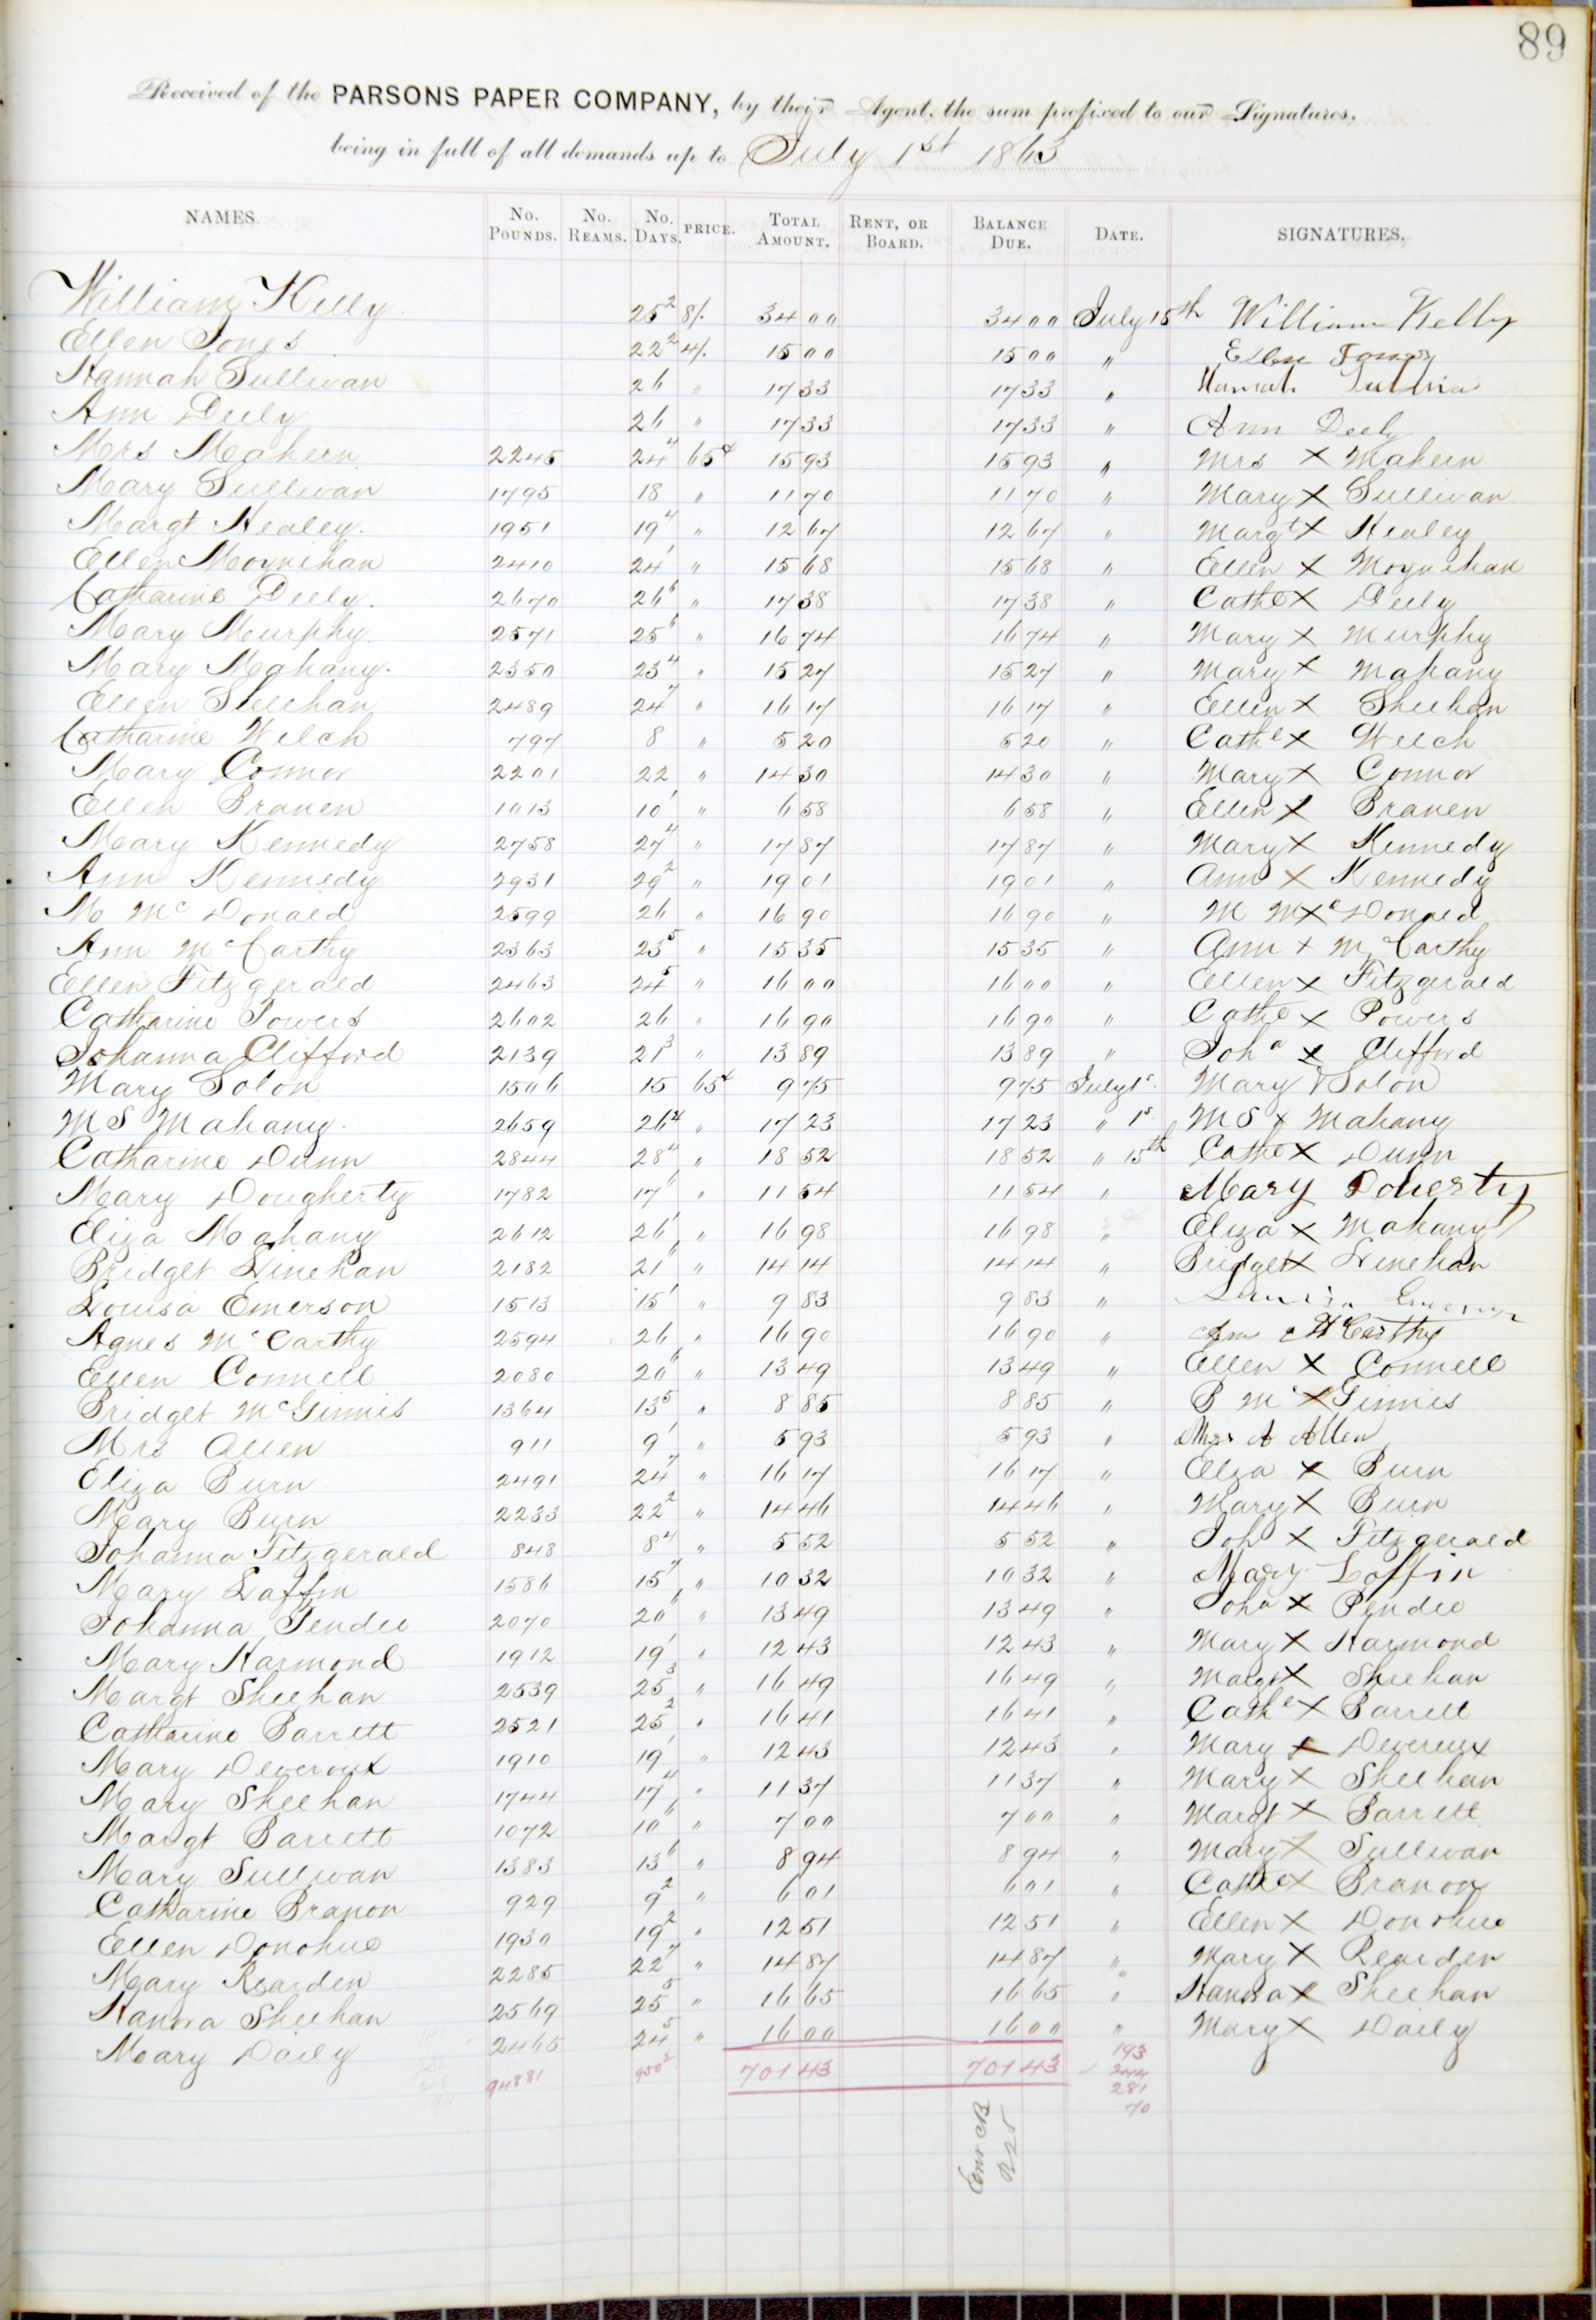 89
Received of the PARSONS PAPER COMPANY, by their Agent, the sum prefixed to our Signatures,
being in full of all demands up to July 1st 1863
NAMES. No. Pounds. No. Reams. No. Days. Price. Total Amount. Rent, or Board. Balance Due. Date. SIGNATURES.
William Kelly 25² 8/. 34 00 34 00 July 15th William Kelly
Ellen Jones 22² 4/. 15 00 15 00 " Ellen
Hannah Sullivan 26 " 17 33 17 33 " Hannah
Ann Deely 26 " 17 33 17 33 " Ann Deely
Mrs Mahern 2245 24⁴ 65¢ 15 93 15 93 " Mrs X Mahern
Mary Sullivan 1795 18 " 11 70 11 70 " Mary X Sullivan
Margt Healey. 1951 19⁴ " 12 67 12 67 " Margt X Healey
Ellen Moynihan 2410 24¹ " 15 68 15 68 " Ellen X Moynihan
Catharine Deely. 2670 26⁶ " 17 38 17 38 " Cathe X Deely
Mary Murphy. 2571 25⁶ " 16 74 16 74 " Mary X Murphy
Mary Mahany. 2350 23⁴ " 15 27 15 27 " Mary X Mahany
Ellen Sheehan 2489 24⁷ " 16 17 16 17 " Ellen X Sheehan
Catharine Welch 797 8 " 5 20 5 20 " Cathe X Welch
Mary Connor 2201 22 " 14 30 14 30 " Mary X Connor
Ellen Branen 1013 10¹ " 6 58 6 58 " Ellen X Branen
Mary Kennedy 2758 27⁴ " 17 87 17 87 " Mary X Kennedy
Ann Kennedy 2931 29² " 19 01 19 01 " Ann X Kennedy
M McDonald 2599 26 " 16 90 16 90 " M McX Donald
Ann McCarthy 2363 23⁵ " 15 35 15 35 " Ann + McCarthy
Ellen Fitzgerald 2463 24⁵ " 16 00 16 00 " Ellen X Fitzgerald
Catharine Powers 2602 26 " 16 90 16 90 " Cathe X Powers
Johanna Clifford 2139 21³ " 13 89 13 89 " Joha X Clifford
Mary Solon 1506 15 65¢ 9 75 9 75 July 1s. Mary X Solon
M S Mahany. 2659 26⁴ " 17 23 17 23 " 1s. M S X Mahany
Catharine Dunn 2844 28⁴ " 18 52 18 52 " 15th Cathe X Dunn
Mary Dougherty 1782 17⁶ " 11 54 11 54 " Mary Doherty
Eliza Mahany 2612 26¹ " 16 98 16 98 " Eliza X Mahany
Bridget Linehan 2182 21⁶ " 14 14 14 14 " Bridget X Linehan
Louisa Emerson 1513 15¹ " 9 83 9 83 " Louisa Emerson
Agnes McCarthy 2594 26 " 16 90 16 90 " McCarthy
Ellen Connell 2080 20⁶ " 13 49 13 49 " Ellen X Connell
Bridget McGinnis 1364 13⁵ " 8 85 8 85 " B Mc X Ginnis
Mrs Allen 911 9¹ " 5 93 5 93 " Mrs A Allen
Eliza Burn 2491 24⁷ " 16 17 16 17 " Elza X Burn
Mary Burn 2233 22² " 14 46 14 46 " Mary X Burn
Johanna Fitzgerald 848 8⁴ " 5 52 5 52 " Joha X Fitzgerald
Mary Laffin 1586 15⁷ " 10 32 10 32 " Mary Loffin
Johanna Pender 2070 20⁶ " 13 49 13 49 " Joha X Pender
Mary Harmond 1912 19¹ " 12 43 12 43 " Mary X Harmond
Margt Sheehan 2539 25³ " 16 49 16 49 " Margt X Sheehan
Catharine Barrett 2521 25² " 16 41 16 41 " Cathe X Barrett
Mary Deveroux 1910 19¹ " 12 43 12 43 " Mary X Devereux
Mary Sheehan 1744 17⁴ " 11 37 11 37 " Mary X Sheehan
Margt Barrett 1072 10⁶ " 7 00 7 00 " Margt X Barrett
Mary Sullivan 1383 13⁶ " 8 94 8 94 " Mary X Sullivan
Catharine Branon 929 9² " 6 01 6 01 " Cathe X Branon
Ellen Donohue 1930 19² " 12 51 12 51 " Ellen X Donohue
Mary Rearden 2285 22⁷ " 14 87 14 87 " Mary X Rearden
Hanora Sheehan 2569 25⁵ " 16 65 16 65 " Hanora X Sheehan
Mary Daily 2465 24⁵ " 16 00 16 00 " Mary X Daily
94881 950² 701 43 701 43 193
244
281
70